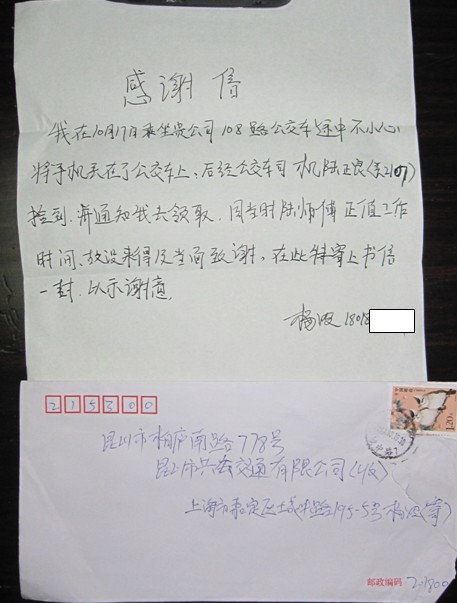 感谢信
我在10月17日乘坐贵公司108路公交车途中不小心
将手机丢在了公交车上、后经公交车司机陆正良(K2107)
捡到.并通知我去领取.因当时陆师傅正值工作
时间、故没来得及当面致谢,在此特寄上书信
一封.以示谢意.
杨波 18018
215300
1.20元
昆山市柏庐南路778号
昆山市公交交通有限公司(收)
上海市嘉定区 路195-5号 杨波(寄)
邮政编码